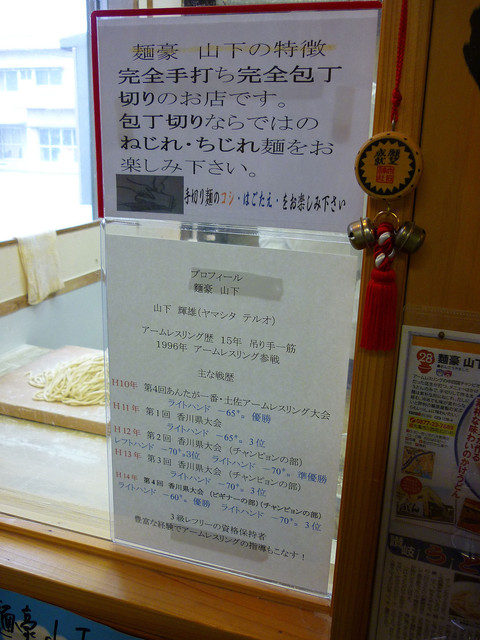 麺豪 山下の特徴
完全手打ち完全包丁
切りのお店です。
包丁切りならではの
ねじれ・ちじれ麺をお
楽しみ下さい。
手切り麺のコシ・はごたえ・をお楽しみ下さい
プロフィール
麺豪 山下
山下 輝雄(ヤマシタ テルオ)
アームレスリング歴 15年 吊り手一筋
1996年 アームレスリング参戦
主な戦歴
H10年 第4回あんたが一番・土佐アームレスリング大会
ライトハンド －65㌔ 優勝
H11年 第1回 香川県大会
ライトハンド －65㌔ 3位
H12年 第2回 香川県大会 (チャンピョンの部)
レフトハンド －70㌔3位 ライトハンド －70㌔ 準優勝
H13年 第3回 香川県大会 (チャンピョンの部)
ライトハンド －70㌔ 3位
H14年 第4回 香川県大会 (ビギナーの部)(チャンピョンの部)
ライトハンド －60㌔ 優勝 ライトハンド －70㌔ 3位
3級レフリーの資格保持者
豊富な経験でアームレスリングの指導もこなす！
28 麺豪 山下
讃岐
麺豪山下